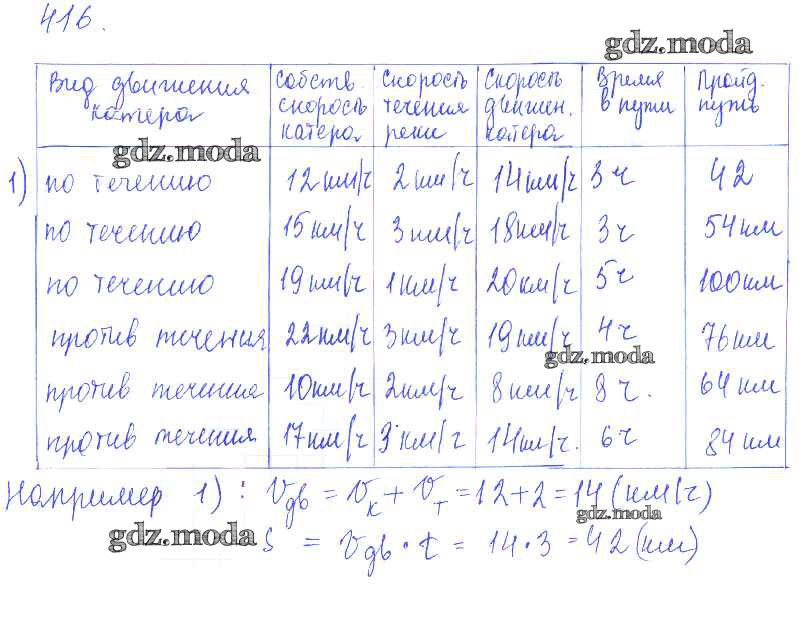 416.
gdz.moda
Вид движения катера | Собств. скорость катера | Скорость течения реки | Скорость движен. катера | Время в пути | Пройд. путь
gdz.moda
1) по течению | 12 км/ч | 2 км/ч | 14 км/ч | 3 ч | 42
по течению | 15 км/ч | 3 км/ч | 18 км/ч | 3 ч | 54 км
по течению | 19 км/ч | 1 км/ч | 20 км/ч | 5 ч | 100 км
против течения | 22 км/ч | 3 км/ч | 19 км/ч | 4 ч | 76 км
gdz.moda
против течения | 10 км/ч | 2 км/ч | 8 км/ч | 8 ч. | 64 км
против течения | 17 км/ч | 3 км/ч | 14 км/ч. | 6 ч | 84 км
Например 1): Vдв = Vк + Vт = 12 + 2 = 14 (км/ч)
gdz.moda
gdz.moda
S = Vдв · t = 14 · 3 = 42 (км)